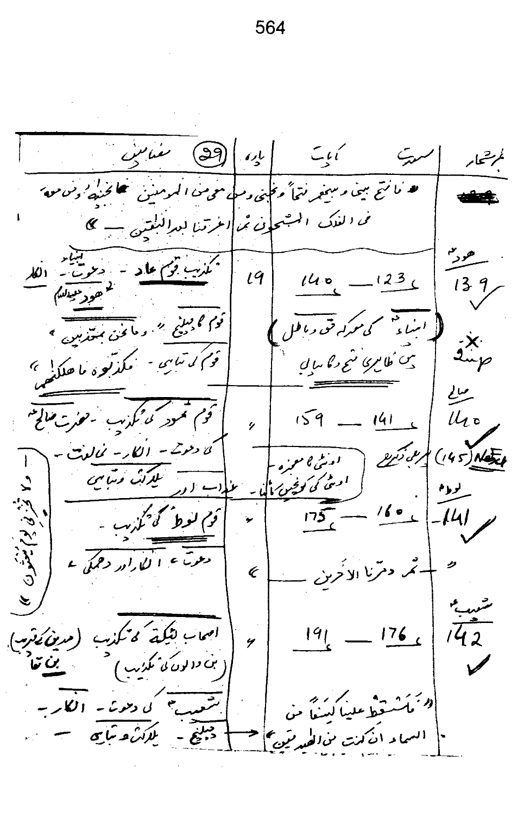 564
نمبر شمار سورت آیات پارہ (29) مضامین
« فافتح بینی و بینھم فتحاً ونجنی ومن معی من المومنین فانجینٰہ ومن معہ
فی الفلک المشحون ثم اغرقنا بعد الباقین — »
ھود
139 123 — 140 19 تکذیب قوم عاد - دعوت - انکار
ھود علیہ السلام
(انبیاء کی معرکہ حق و باطل قوم کا چیلنج « وما نحن بمعذبین »
میں ظاہری فتح و کامیابی) قوم کی تباہی - فکذبوہ فاھلکنٰھم »
صالح
140 141 — 159 " قوم ثمود کی تکذیب - حضرت صالح
Next (145) کی دعوت - انکار - مخالفت -
اونٹنی کا معجزہ -
اونٹنی کی کونچیں کاٹنا - عذاب اور ہلاکت و تباہی
لوط
141 160 — 175 " قوم لوط کی تکذیب -
« — ثم دمرنا الآخرین — » دعوت، انکار اور دھمکی،
— ولا تخزنی یوم یبعثون »
شعیب
142 176 — 191 " اصحاب لئیکۃ کی تکذیب (مدین کے قریب)
(بن والوں کی تکذیب) بن تھا
« فاسقط علینا کسفاً من شعیب کی دعوت - انکار -
السماء ان کنت من الصدقین » چیلنج - ہلاکت و تباہی —